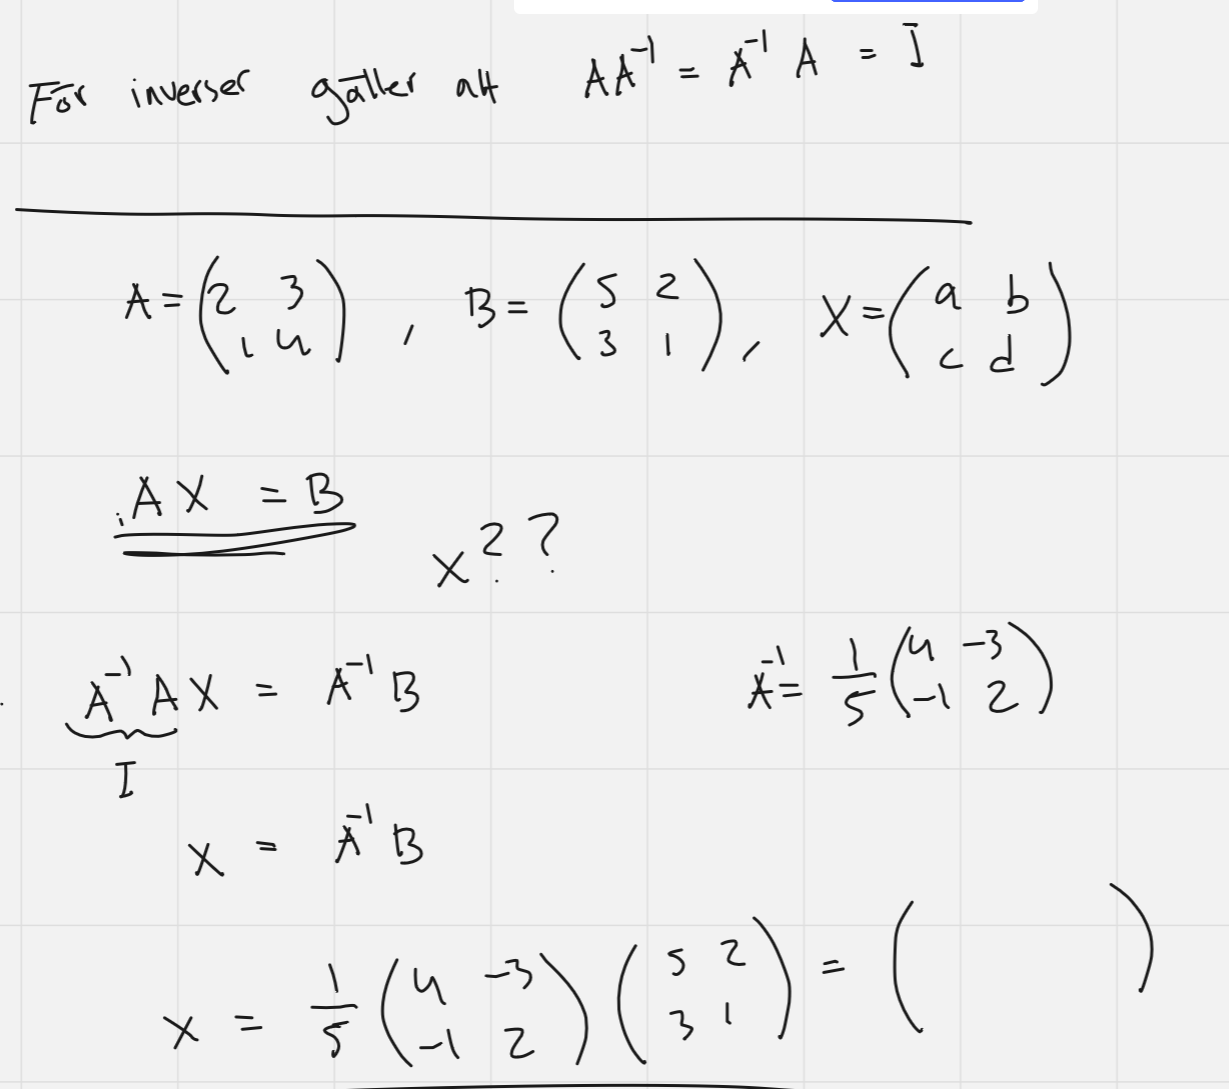 För inverser gäller att AA⁻¹ = A⁻¹ A = I
A = (2 3 / 1 4) , B = (5 2 / 3 1) , X = (a b / c d)
AX = B
X ? ?
A⁻¹ A X = A⁻¹ B
A⁻¹ = 1/5 (4 -3 / -1 2)
I
X = A⁻¹ B
X = 1/5 (4 -3 / -1 2) (5 2 / 3 1) = ( )